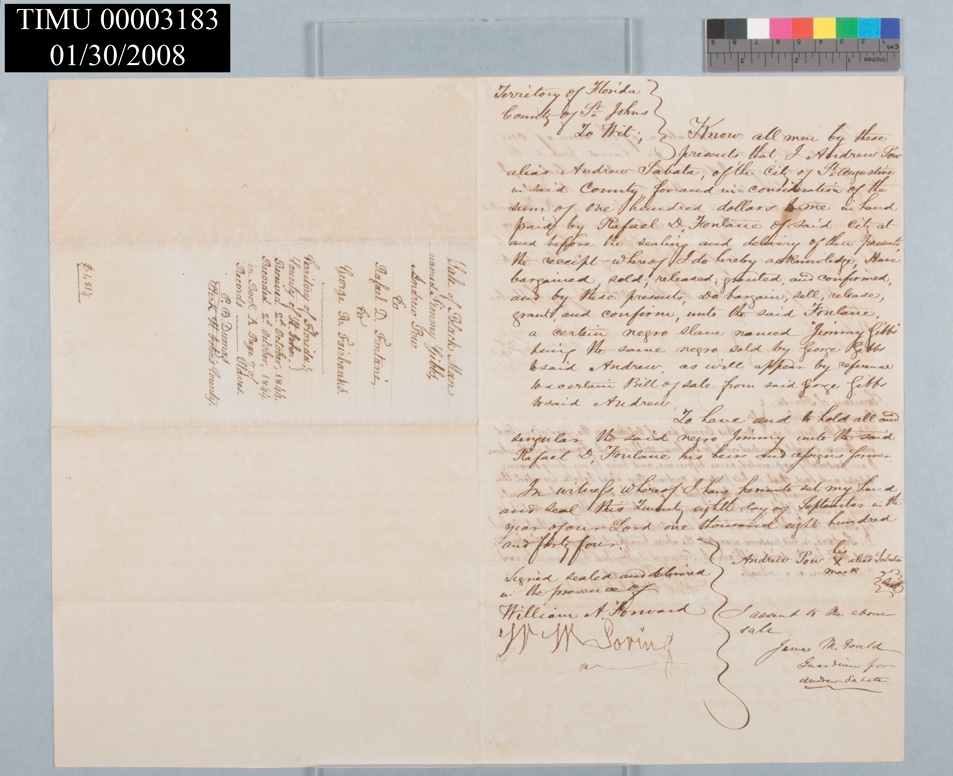 TIMU 00003183
01/30/2008
Territory of Florida
County of St. Johns
To Wit;
Know all men by these
presents that I Andrew Pow
alias Andrew Sabata, of the City of St. Augustine
in said County for and in consideration of the
sum of one hundred dollars to me in hand
paid by Rafael D. Fontane of said city at
and before the sealing and delivery of these presents
the receipt whereof I do hereby acknowledge, Have
bargained, sold, released, granted, and confirmed,
and by these presents, do bargain, sell, release,
grant and confirm, unto the said Fontane,
a certain negro slave named Jimmy Gibbs
being the same negro sold by George Gibbs
to said Andrew, as will appear by reference
to a certain Bill of sale from said George Gibbs
to said Andrew.
To have and to hold all and
singular the said negro Jimmy unto the said
Rafael D, Fontane his heirs and assigns forever
In witness whereof I have hereunto set my hand
and seal this Twenty eighth day of September in the
year of our Lord one thousand eight hundred
and forty four.
Andrew Pow his X mark alias Sabata
Seal
Signed sealed and delivered
in the presence of
William A. Forward
W W Loring
I assent to the above
sale
James M. Gould
Guardian for
Andrew Sabata
Sale of Black Man
named Jimmy Gibbs,
Andrew Pow
to
Rafael D. Fontané,
to
George R. Fairbanks.
Territory of Florida,
County of St. Johns,
Received 2d October, 1844.
Recorded 2d October, 1844
in Book A. Page
Records
P. B. Dumas
Clerk St Johns County.